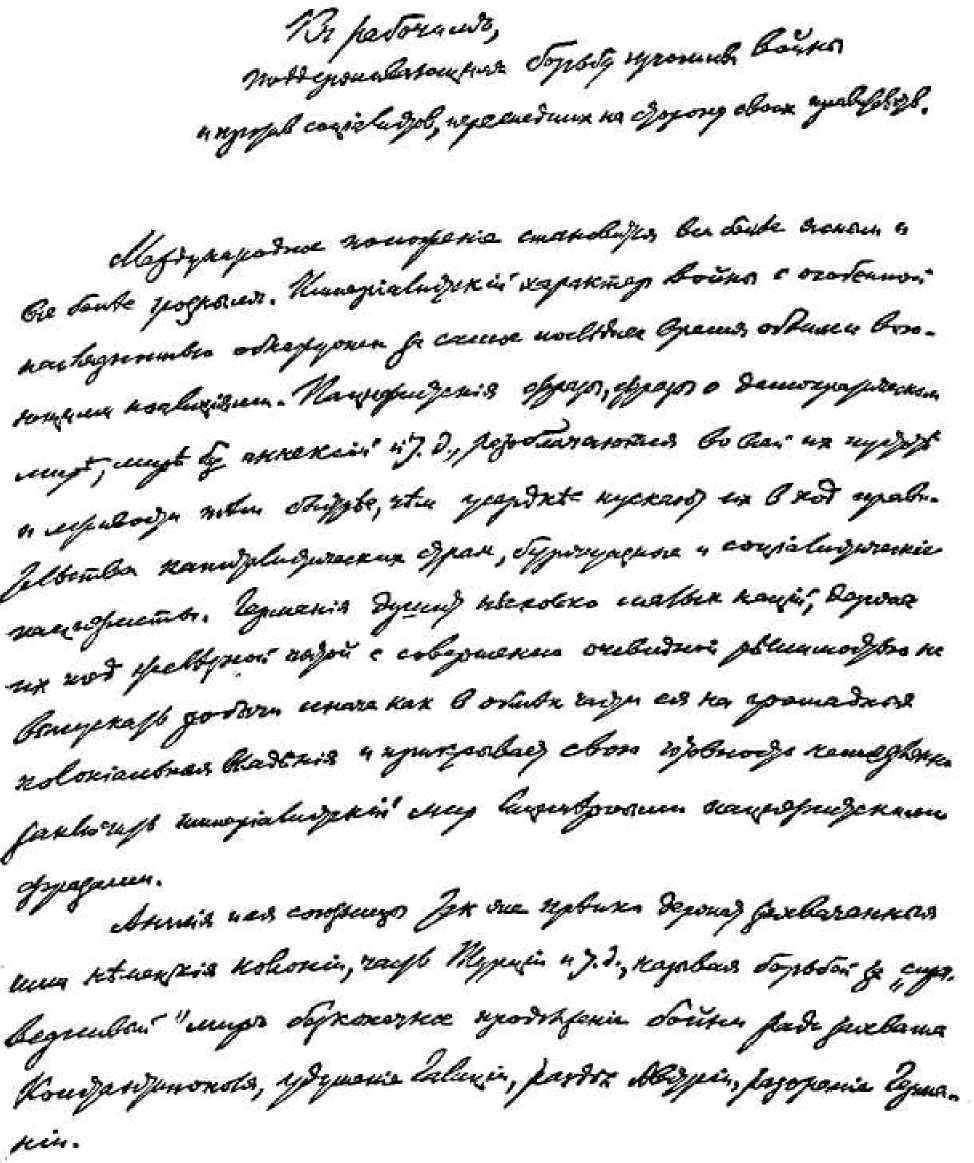 Къ рабочимъ,
поддерживающим борьбу против войны
и против соціалистов, перешедших на сторону своих правительств.
Международное положеніе становится все болѣе ясным и
все болѣе грозным. Имперіалистскій характер войны с особенной
наглядностью обнаружен за самое последнее время обѣими вою-
ющими коалиціями. Пацифистскія фразы, фразы о демократическом
мирѣ, мирѣ без аннексій и т. д., разоблачаются во всей их пустотѣ
и лживости тѣм быстрѣе, чѣм усерднѣе пускают их в ход прави-
тельства капиталистических стран, буржуазные и соціалистическіе
пацифисты. Германія душит нѣсколько малых націй, держа
их под желѣзной пятой с совершенно очевидной рѣшимостью не
выпускать добычи иначе как в обмѣн части ея на громадныя
колоніальныя владѣнія и прикрывает свою готовность немедленно
заключить имперіалистскій мир лицемѣрными пацифистскими
фразами.
Англія и ея союзницы так же крѣпко держат захваченныя
ими нѣмецкія колоніи, часть Турціи и т. д., называя борьбой за „спра-
ведливый" миръ безконечное продолженіе бойни ради захвата
Константинополя, удушенія Галиціи, раздѣл Австріи, разореніе Герма-
ніи.